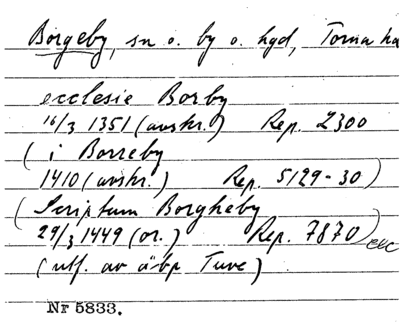 Borgeby, sn o. by o. hgd, Torna ha
ecclesie Borby
16/3 1351 (avskr.) Rep. 2300
( i Borreby
1410 (avskr.) Rep. 5129-30)
( Scriptum Borgheby
29/3 1449 (or.) Rep. 7870)
(utf. av äbp Tuve)
Nr 5833.